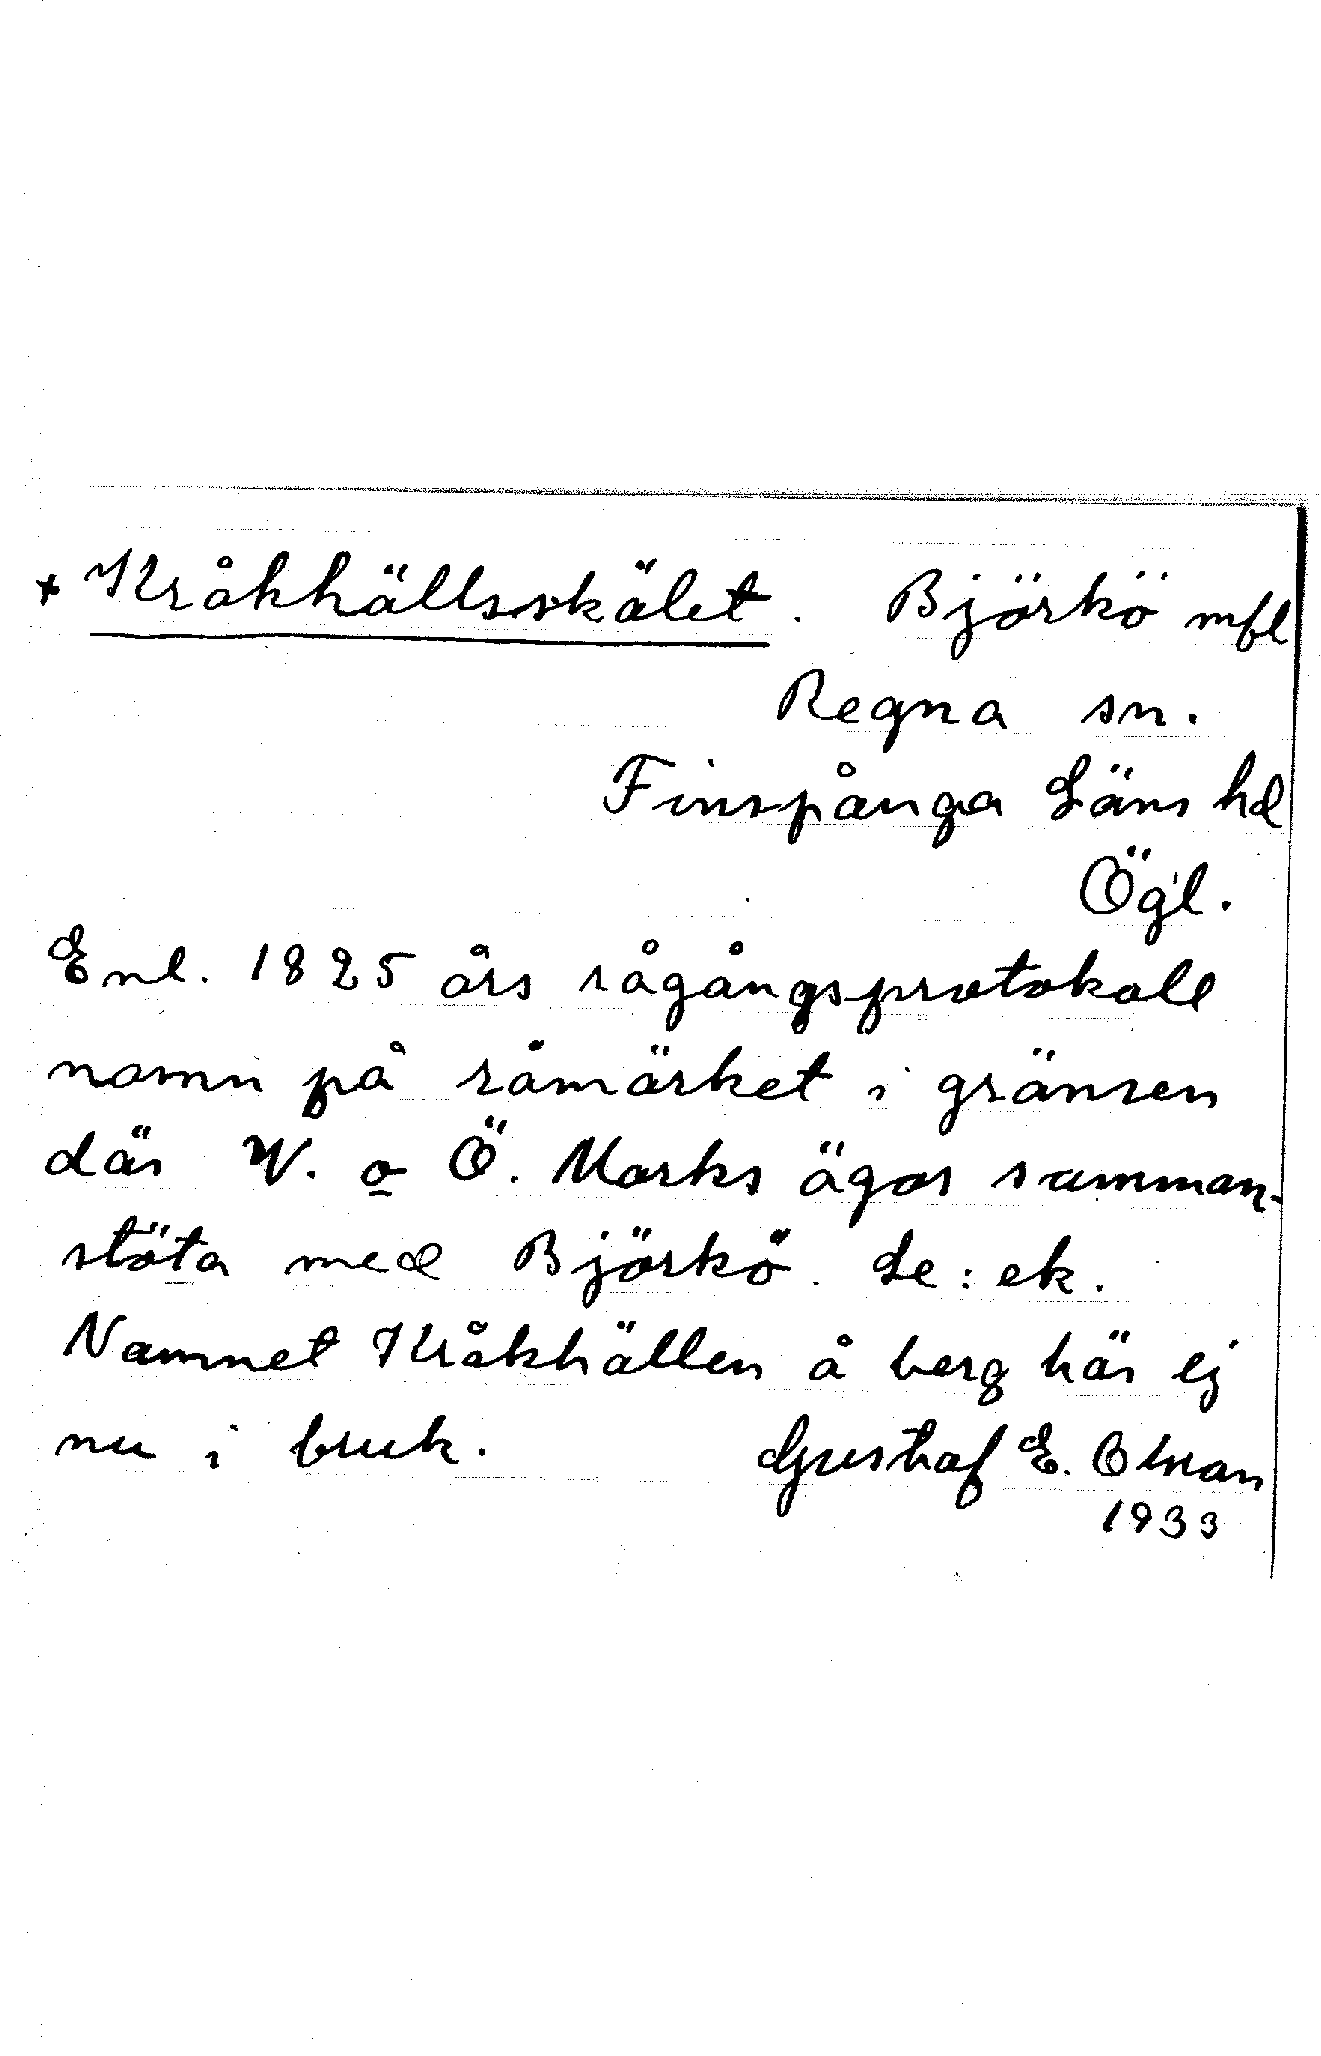 + Kråkhällsskälet. Björkö mfl
Regna sn.
Finspånga Läns hd
Ögl.
Enl. 1825 års rågångsprotokoll
namn på råmärket i gränsen
där W. o Ö. Marks ägor samman-
stöta med Björkö. Se: ek.
Namnet Kråkhällen å berg här ej
nu i bruk. Gustaf E. Olsson
1933